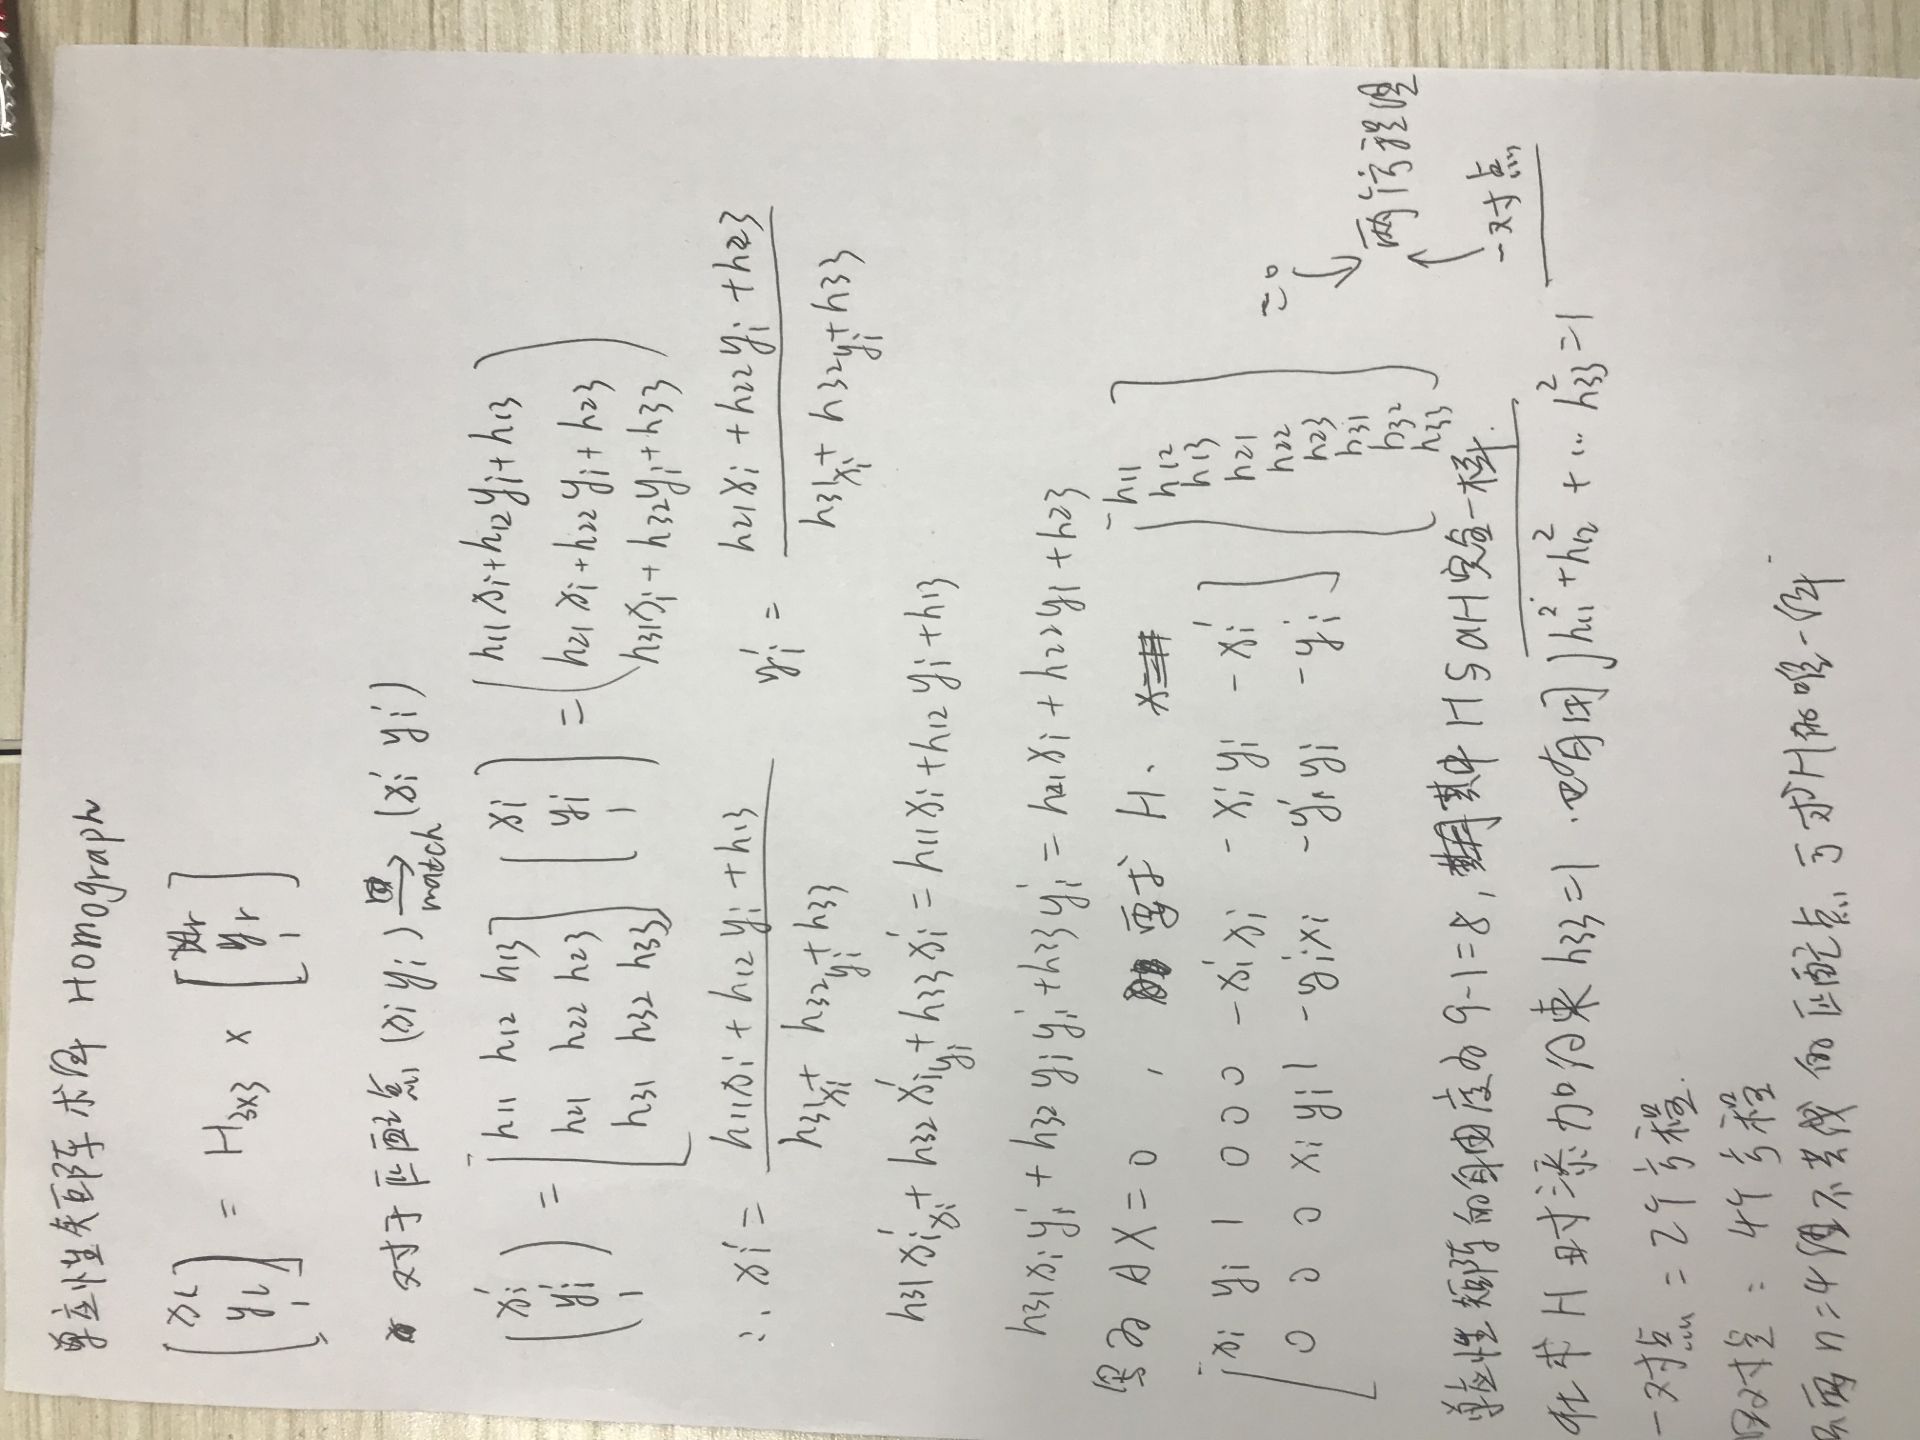 单应性矩阵求解 Homograph
[xl yl 1] = H3x3 × [xr yr 1]
对于匹配点 (xi yi) → match (xi' yi')
(xi' yi' 1) = [h11 h12 h13 h21 h22 h23 h31 h32 h33] [xi yi 1] = (h11xi+h12yi+h13 h21xi+h22yi+h23 h31xi+h32yi+h33)
∴ xi' = (h11xi + h12yi + h13) / (h31xi + h32yi + h33) yi' = (h21xi + h22yi + h23) / (h31xi + h32yi + h33)
h31xi'xi + h32xi'yi + h33xi' = h11xi + h12yi + h13
h31xiyi' + h32yiyi' + h33yi' = h21xi + h22yi + h23
写为 AX = 0 , 要求 H.
[xi yi 1 0 0 0 -xi'xi -xi'yi -xi'
0 0 0 xi yi 1 -yi'xi -yi'yi -yi']
[h11 h12 h13 h21 h22 h23 h31 h32 h33] = 0
↓
两个方程组
↑
一对点
单应性矩阵的自由度为 9-1=8, 其中 H与aH完全一样.
在求 H 时添加约束 h33=1. 也有用 √h11²+h12² + … h33² = 1
一对点 = 2个方程.
四对点 = 4个方程
只需 n=4 组不共线的匹配点可求H的唯一解